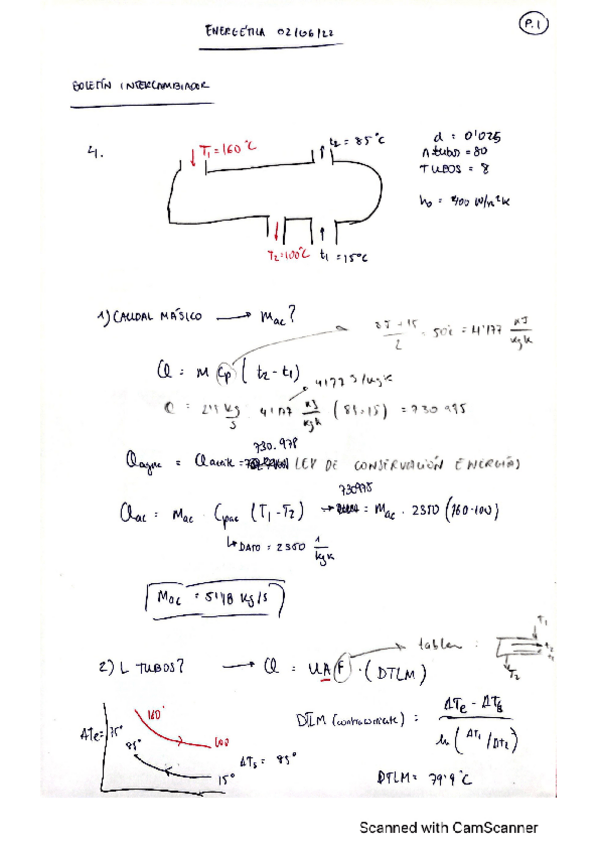 ENERGÉTICA 02/06/22
P.1
BOLETÍN INTERCAMBIADOR
4.
T1=160°C
t2 = 85°C
d = 0'025
n tubos = 80
TUBOS = 8
h0 = 400 W/m²K
T2=100°C
t1 = 15°C
1) CAUDAL MÁSICO → Mac?
85+15 / 2 = 50°C = 4'177 KJ/KgK
Q = M Cp ( t2 - t1)
4177 J/KgK
Q = 2'5 Kg/s · 4177 KJ/KgK (85-15) = 730 975
730.978
Qagua = Qaceite = (LEY DE CONSERVACIÓN ENERGÍA)
730975
Qac = Mac · Cpac (T1 - T2) → = Mac · 2350 (160-100)
↳ DATO = 2350 J/KgK
Mac = 5'18 Kg/s
2) L TUBOS? → Q = UAF · (DTLM)
tablas :
T1
t2
t1
T2
160°
100
ΔTe = 75°
85°
15°
ΔTs = 85°
DTLM (contracorriente) : ΔTe - ΔTs / ln (ΔT1/ΔT2)
DTLM = 79'9°C
Scanned with CamScanner